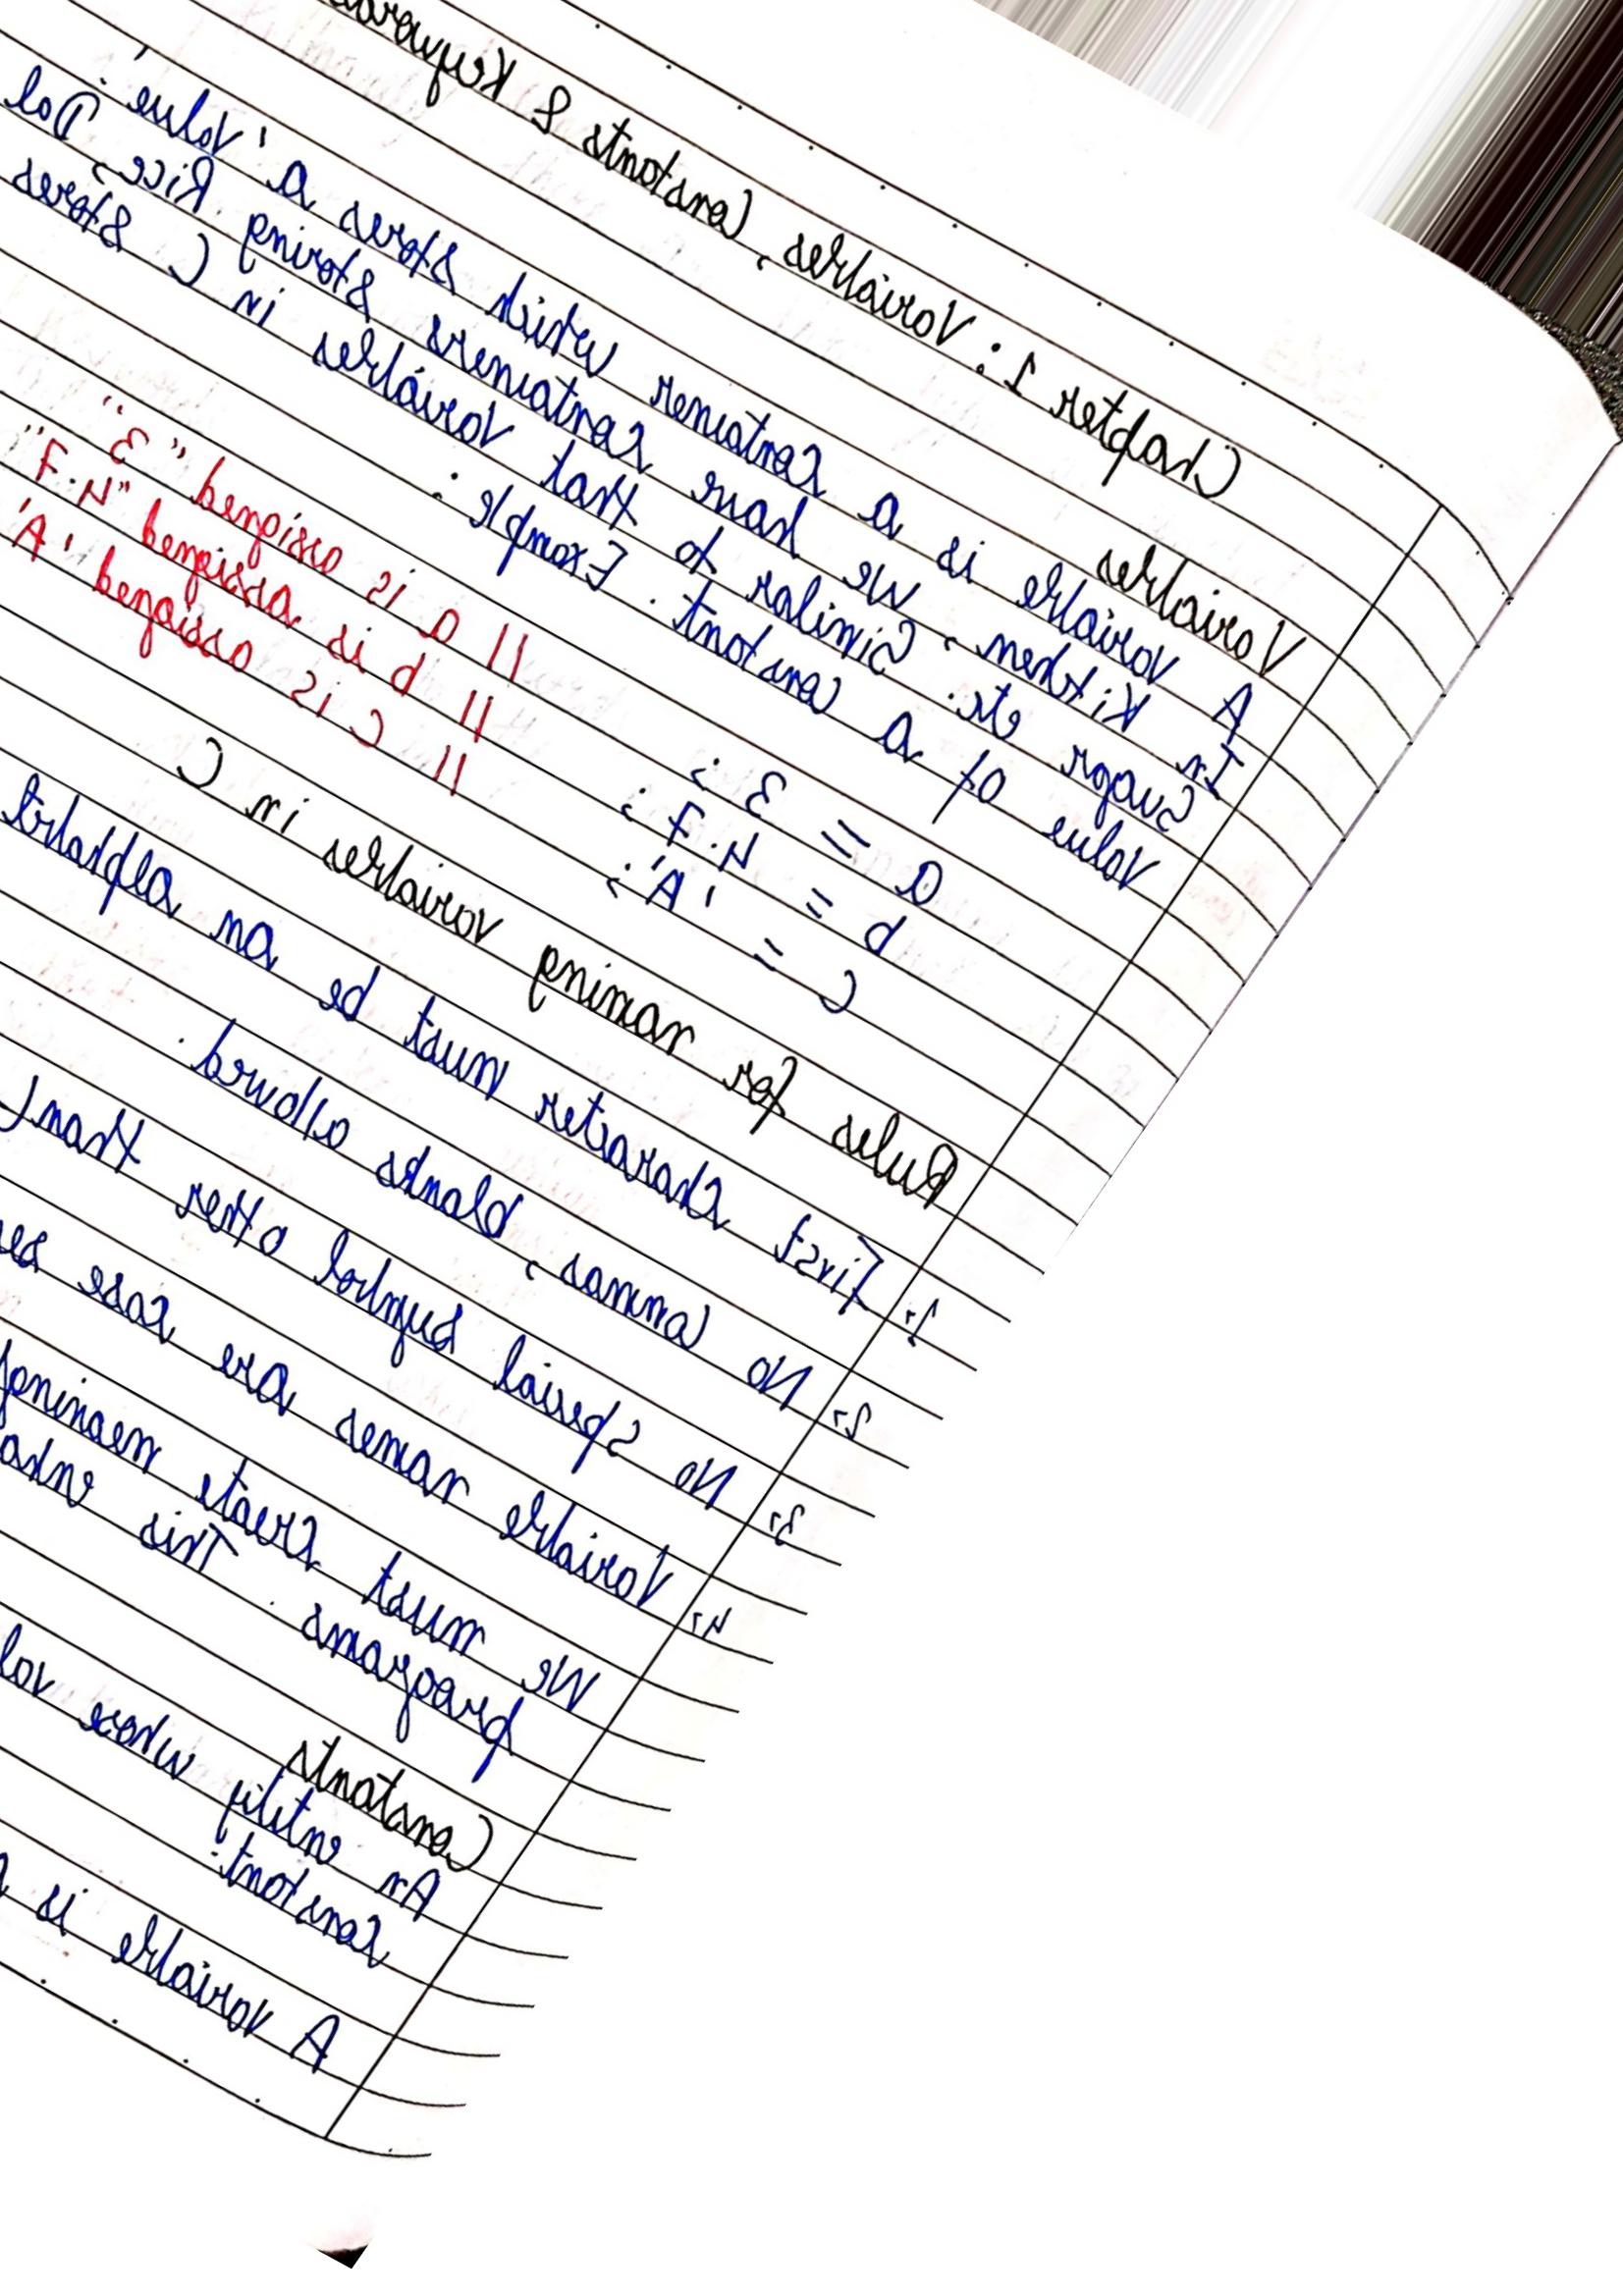 Chapter 1: Variables, Constants & Keywords
Variables
A variable is a container which stores a 'value'.
In Kitchen, We have containers storing Rice, Dal
Sugar etc. Similar to that Variables in C stores
value of a constant. Example:
a = 3; // a is assigned "3"
b = 4.7; // b is assigned "4.7"
c = 'A'; // c is assigned 'A'
Rules for naming variables in C
1. First character must be an alphabet
2. No commas, blanks allowed.
3. No special symbol other than (
4. Variable names are case
We must create meaningful
programs. This
Constants
An entity whose
constant.
A variable is